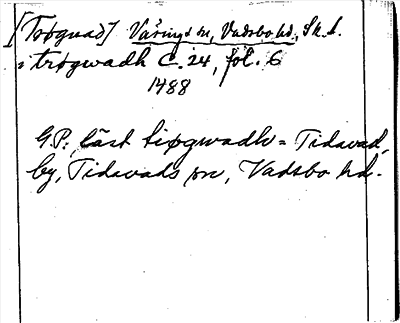 [Trøgvad] Vårings sn, Vadsbo hd, Sk. l.
i trøgwadh C. 24, fol. 6
1488
G.P: läst tiøgwadh = Tidavad,
by, Tidavads sn, Vadsbo hd.